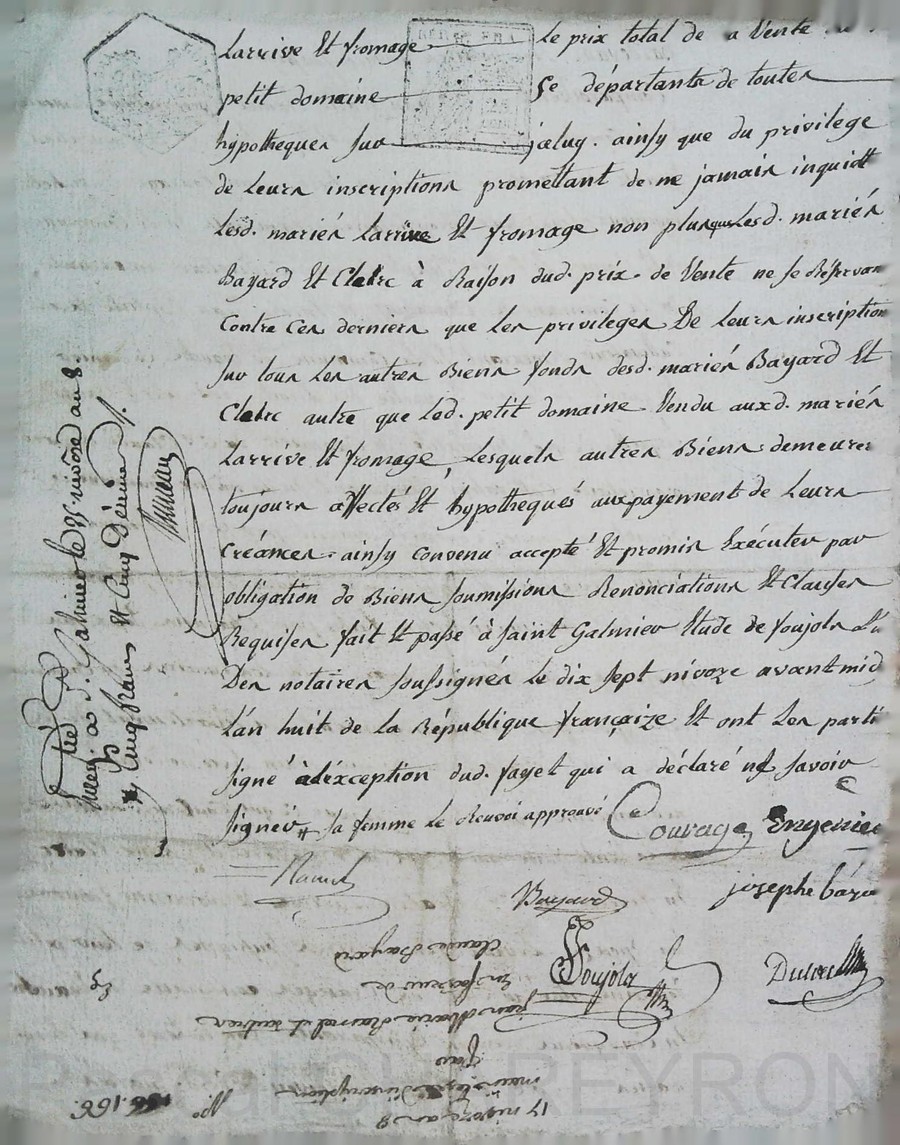 Larrive Et fromage le prix total de a Vente
petit domaine Se départants de toutes
hypotheques sur jceluy. ainsy que du privilege
de Leurs inscriptions promettant de ne jamais inquiett
Lesd. mariés Larrive Et fromage non plus que Lesd. mariés
Bayard Et Clerc à Raison dud. prix de Vente ne se Réservan
Contre Ces derniers que Les privileges De Leurs inscription
sur tous Les autres Biens fonds desd. mariés Bayard Et
Clerc autre que Led. petit domaine Vendu auxd. mariés
Larrive Et fromage, Lesquels autres Biens demeures
toujours affectés Et hypothequés aux payement de Leurs
Créances. ainsy convenu accepté Et promis Exécuter par
obligation de Biens soumissions Renonciations Et Clauses
Requises fait Et passé à Saint Galmier Etude de Soujola L'u
Des notaires soussignés le dix sept nivoze avant mid
L'an huit de la République françaize Et ont Les parti
signé à l'éxception dud. fayet qui a déclaré ne savoir
signer sa femme le Renvoi approuvé Courage Engenie
Ramel Bayard josephe
Soujola
a S. Galmier le 25 nivôse an 8.
Cinq francs et Cinq Décimes
17 nivoze an 8
d'inscription
par
jean Marie Ramel et autres
En faveur de
Claude Bayard
N.o 166